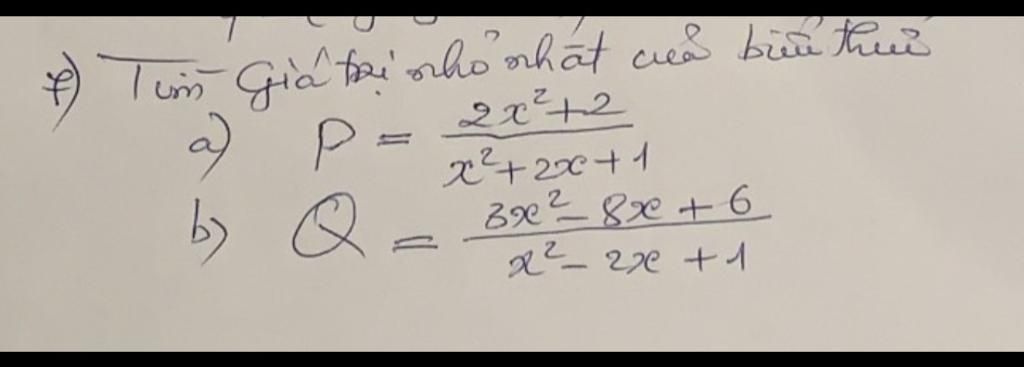 7) Tìm giá trị nhỏ nhất của biểu thức
a) P = \frac{2x^2+2}{x^2+2x+1}
b) Q = \frac{3x^2-8x+6}{x^2-2x+1}